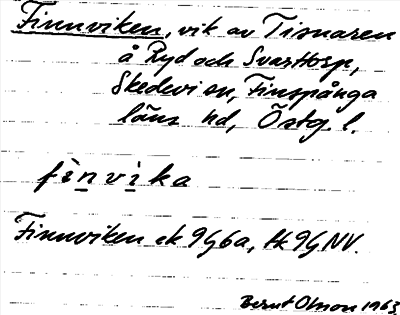 Finnviken, vik av Tisnaren
å Ryd och Svarttorp,
Skedevi sn, Finspånga
läns hd, Östg. l.
fìnvìka
Finnviken ek 9G6a, tk 9G NV.
Bernt Olsson 1963